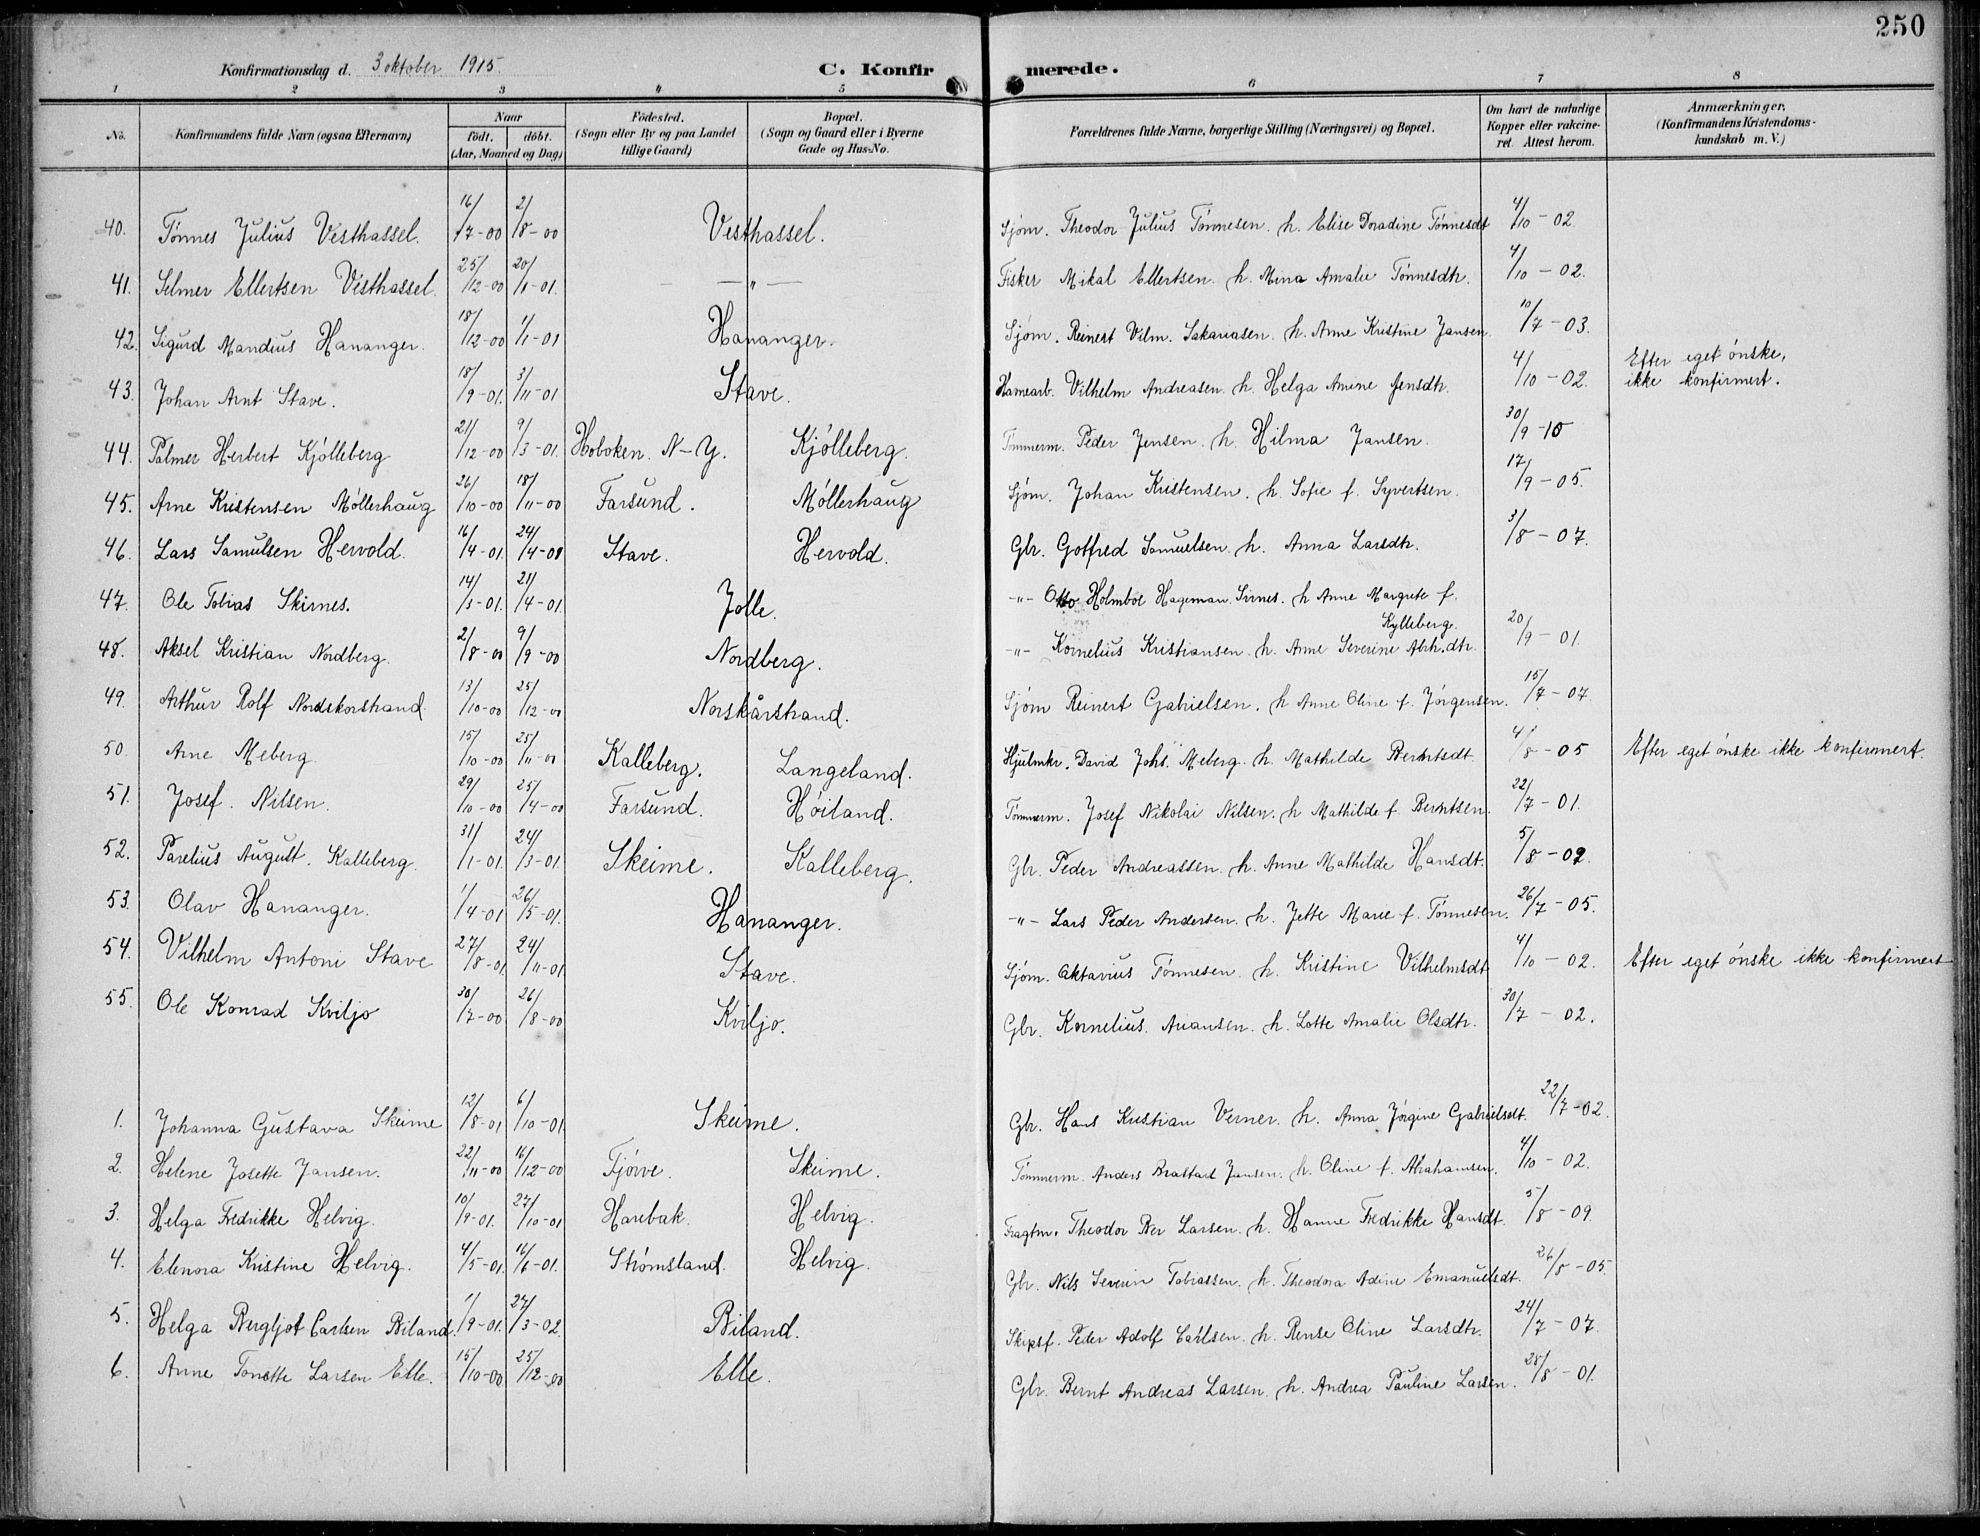 250
Konfirmationsdag d. 3 oktober 1915. C. Konfirmerede.
1 2 3 4 5 6 7 8
No. Konfirmandens fulde Navn (ogsaa Efternavn) Naar født. døbt. (Aar, Maaned og Dag) Fødested. (Sogn eller By og paa Landet tillige Gaard) Bopæl. (Sogn og Gaard eller i Byerne Gade og Hus-No. Forældrenes fulde Navne, borgerlige Stilling (Næringsvei) og Bopæl. Om havt de naturlige Kopper eller vakcineret. Attest herom. Anmærkninger. (Konfirmandens Kristendomskundskab m. V.)
40. Tønnes Julius Vesthassel. 16/7-00 2/8-00 Vesthassel. Sjøm. Theodor Julius Tønnesen. h. Elise Doradine Tønnesdt 4/10-02.
41. Selmer Ellertsen Vesthassel. 25/12-00 20/1-01. —"— Fisker Mikal Ellertsen. h. Mina Amalie Tønnesdtr. 4/10-02.
42. Sigurd Mandius Hananger. 18/12-00 1/1-01 Hananger. Sjøm. Reinert Vilm. Sakariasen. h. Anne Kristine Jansen. 10/7-03.
43. Johan Arnt Stave. 18/9-01. 3/11-01 Stave. Havnearb. Vilhelm Andreasen. h. Helga Amine Jensdtr. 4/10-02. Efter eget ønske, ikke konfirmert.
44. Palmer Herbert Kjølleberg 21/12-00 9/3-01. Hoboken. N-Y. Kjølleberg. Tømmerm. Peder Jensen. h. Hilma Jansen. 30/9-10
45. Arne Kristensen Møllerhaug 26/10-00 18/11-00 Farsund. Møllerhaug Sjøm. Johan Kristensen. h. Sofie f. Syvertsen. 17/9-05.
46. Lars Samulsen Hervold. 16/4-01. 24/4-01 Stave. Hervold. Gbr. Gotfred Samuelsen. h. Anna Larsdtr. 3/8-07.
47. Ole Tobias Skirnes. 14/3-01. 21/4-01. Jolle. -"- Otto Holmboe Hageman. Sirnes. h Anne Margrete f. Kylleberg.
48. Aksel Kristian Nordberg. 2/8-00 9/9-00 Nordberg. -"- Kornelius Kristiansen. h. Anne Severine Abrh.dtr. 20/9-01.
49. Arthur Rolf Nordskorstrand 13/10-00 25/12-00 Norskårstrand. Sjøm Reinert Gabrielsen. h Anne Oline f. Jørgensen. 15/7-07.
50. Arne Meberg. 15/10-00 25/11-00 Kalleberg. Langeland. Hjulmkr. David Johs. Meberg. h. Mathilde Berntsdt. 4/8-05 Efter eget ønske ikke konfirmert.
51. Josef. Nilsen. 29/10-00 25/4-00 Farsund. Høiland. Tømmerm. Josef Nikolai Nilsen. h Mathilde f. Berntsen. 22/7-01.
52. Parelius August. Kalleberg. 31/1-01. 24/3-01. Skeime. Kalleberg. Gbr. Peder Andreassen. h. Anne Mathilde Hansdt. 5/8-02.
53. Olav Hananger. 1/4-01 26/5-01. Hananger. -"- Lars Peder Andersen. h. Jette Marie f. Tønnesen. 26/7-05.
54. Vilhelm Antoni Stave 27/8-01. 24/11-01. Stave. Sjøm. Aktavius Tønnesen. h. Kristine Vilhelmsdt 4/10-02. Efter eget ønske ikke konfirmert
55. Ole Konrad Kviljo 30/7-00 26/8-00 Kviljo. Gbr. Kornelius. Ariansen. h. Lotte Amalie Olsdtr. 30/7-02.
1. Johanna Gustava Skeime 12/8-01 6/10-01. Skeime. Gbr. Hans Kristian Verner. h. Anna Jørgine Gabrielsdt. 22/7-02.
2. Helene Josette Jansen. 22/11-00 16/12-00 Fjørve. Skeime. Tømmerm. Anders Brastad Jansen. h. Oline f. Abrahamsen. 4/10-02.
3. Helga Fredrikke Helvig. 10/9-01. 27/10-01 Harebak. Helvig. Fragtm. Theodor Ber Larsen. h. Hanne Fredrikke Hansdt. 5/8-09
4. Elenora Kristine Helvig. 4/5-01. 16/6-01. Strømsland. Helvig. Gbr. Nils Severin Tobiassen. h. Theodora Adine Emanuelsdt. 26/8-05.
5. Helga Bergljot Carlsen Biland. 1/9-01. 27/3-02. Biland. Skipsf. Peder Adolf Carlsen. h. Rense Oline Larsdtr. 24/7-07.
6. Anne Tonette Larsen Elle. 15/10-00 25/12-00 Elle. Gbr. Bernt Andreas Larsen. h. Andrea Pauline Larsen. 28/8-01.